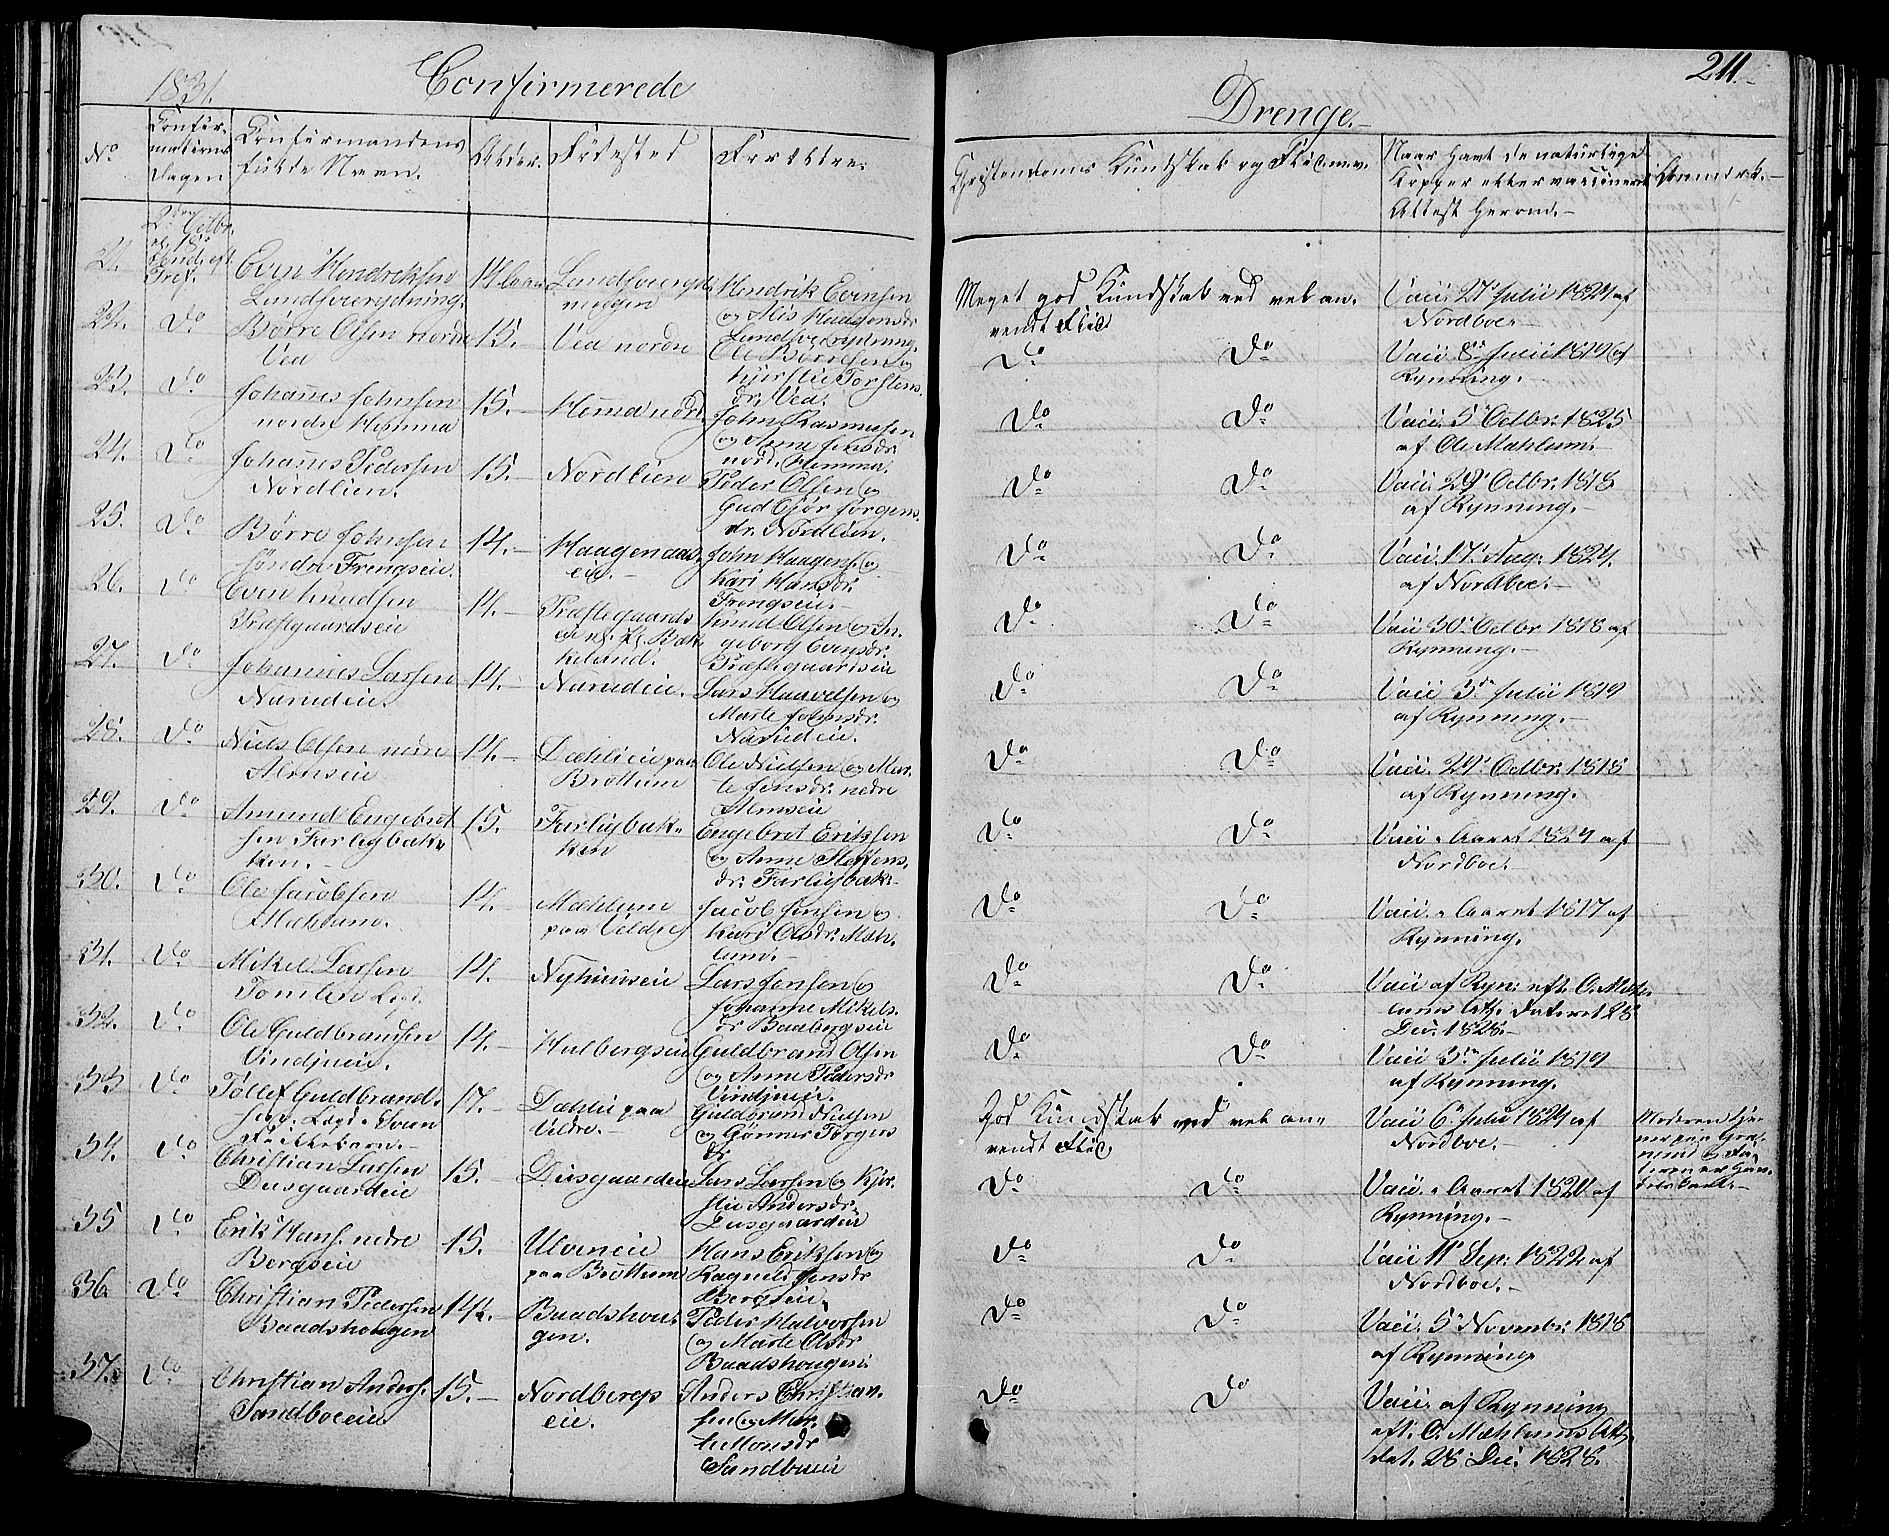 1831.
Confirmerede
No
Confir-
mations
Dagen
Confirmandens
fulde Navn.
Alder.
Fødested
Forældre.
21.
2den Octbr.
Even Hendrichsen
14
Hendrik Evensen
22. Do
Børre Olsen nordre
Vea
15.-
Vea nordre
Ole Børresen og
Kjerstie Torstens
dr. Vea.
23. Do
Johañes Johnsen
nordre Hemma
15.-
John Rasmusen
og Anne Jensdr
nord. Hemma.
24. Do
Johañes Pedersen
Nordlien.
15.-
Nordlien
Peder Olsen og
Jørgens
dr. Nordlien.
25. Do
Børre Johnsen
søndre Frengseie.
14.-
eie.-
John Haagens. og
Kari Hansdr.
Frengseie.-
26. Do
Even Knudsen
Præstegaardseie
14.-
Præstegaards
Knud Olsen og In-
geborg Evensdr.
Præstegaardseie
27. Do
Johannes Larsen
14.-
Lars Haavelsen og
Marte Johnsdr.
28. Do
Niels Olsen nedre
Alm̃seie
14.-
Dæhlieie paa
Brøttum
Ole Nielsen og Mar-
te Jensdr. nedre
Alm̃seie
29. Do
Amund Engebret
sen Farligbak-
ken.-
15.
Farligbak-
ken
Engebret Eriksen
og Anne Steffens-
dr. Farligbak-
30. Do
Ole Jacobsen
Mæhlum.
14.
Mæhlum
paa Veldre
Jacob Jensen og
Kari Olsdr. Mæh-
lum.-
31. Do
Mikel Larsen
Tomlen Legd.
14.
Nyhuuseie
Lars Jensen og
Johanne Mikels-
dr Baabergseie
32. Do
Ole Guldbrandsen
Vindjueie.
14.-
Halbergseie
Guldbrand Olsen
og Anne Pedersdr
Vindjueie.
33 Do
Tollef Guldbrand-
17.-
Dæhlie paa
Veldre.-
Guldbrand Nielsen
og Gønner Torgers
dr
34. Do
Christian Larsen
Duesgaardeie
15.-
Duesgaardeie
Lars Larsen og Kjer-
stie Andersdr.
Duesgaardeie
35 Do
Erik Hans. nedre
Bergseie
15.
Ulveneie
paa Brøttum
Hans Eriksen og
Ragnild Jensdr
Bergseie.
36. Do
Christian Pedersen
Baadshougen
14½.-
Baadshou-
gen.
Peder Halvorsen
og Marte Olsdr
Baadshougen.
37. Do
Christian Anders.
Sandboeeie.
15.-
Nordbergs
eie.
Anders Christian-
sen og Mar-
te Monsdr
Sandbueie
211.
Drenge.-
Christendoms Kundskab og Flid m.v.
Naar havt de naturlige
Kopper eller vaccineret
Attest herom.-
Anmærk.-
Meget god Kundskab ved vel an-
vendt Flid
Vacc. 27 Julii 1824 af
Nordboe.-
Do Do
Vacc. 8 Julii 1819 af
Rynning.
Do Do
Vacc. 5 Octbr. 1825
af Ole Mæhlum.-
Do Do
Vacc. 29 Octbr. 1818
af Rynning.-
Do Do
Vacc. 17 Aug. 1824.
af Nordboe.-
Do Do
Vacc 30 Octbr 1818 af
Rynning.-
Do Do
Vacc 3 Julii 1819
af Rynning.-
Do Do
Vacc. 29 Octbr. 1818
af Rynning.
Do Do
Vacc. Aaret 1824 af
Nordboe.-
Do Do
Vacc. Aaret 1817 af
Rynning.
Do Do
Vacc af Ryn. eft. O. Mæh-
lums Att. dateret 28
Dec. 1828.-
Do Do
Vacc 3 Julii 1819
af Rynning.
God Kundskab ved vel an-
vendt Flid
Vacc 6 Julii 1824 af
Nordboe.-
Moderen tje-
ner paa
Do Do
Vacc. Aaret 1820 af
Rynning.-
Do Do
Vacc 11 Sep. 1822 af
Nordboe.-
Do Do
Vacc. 5 Novembr. 1818
af Rynning
Do Do
Vacc. af Rynning
eft. O. Mæhlums Att.
dat. 28 Dec. 1828.